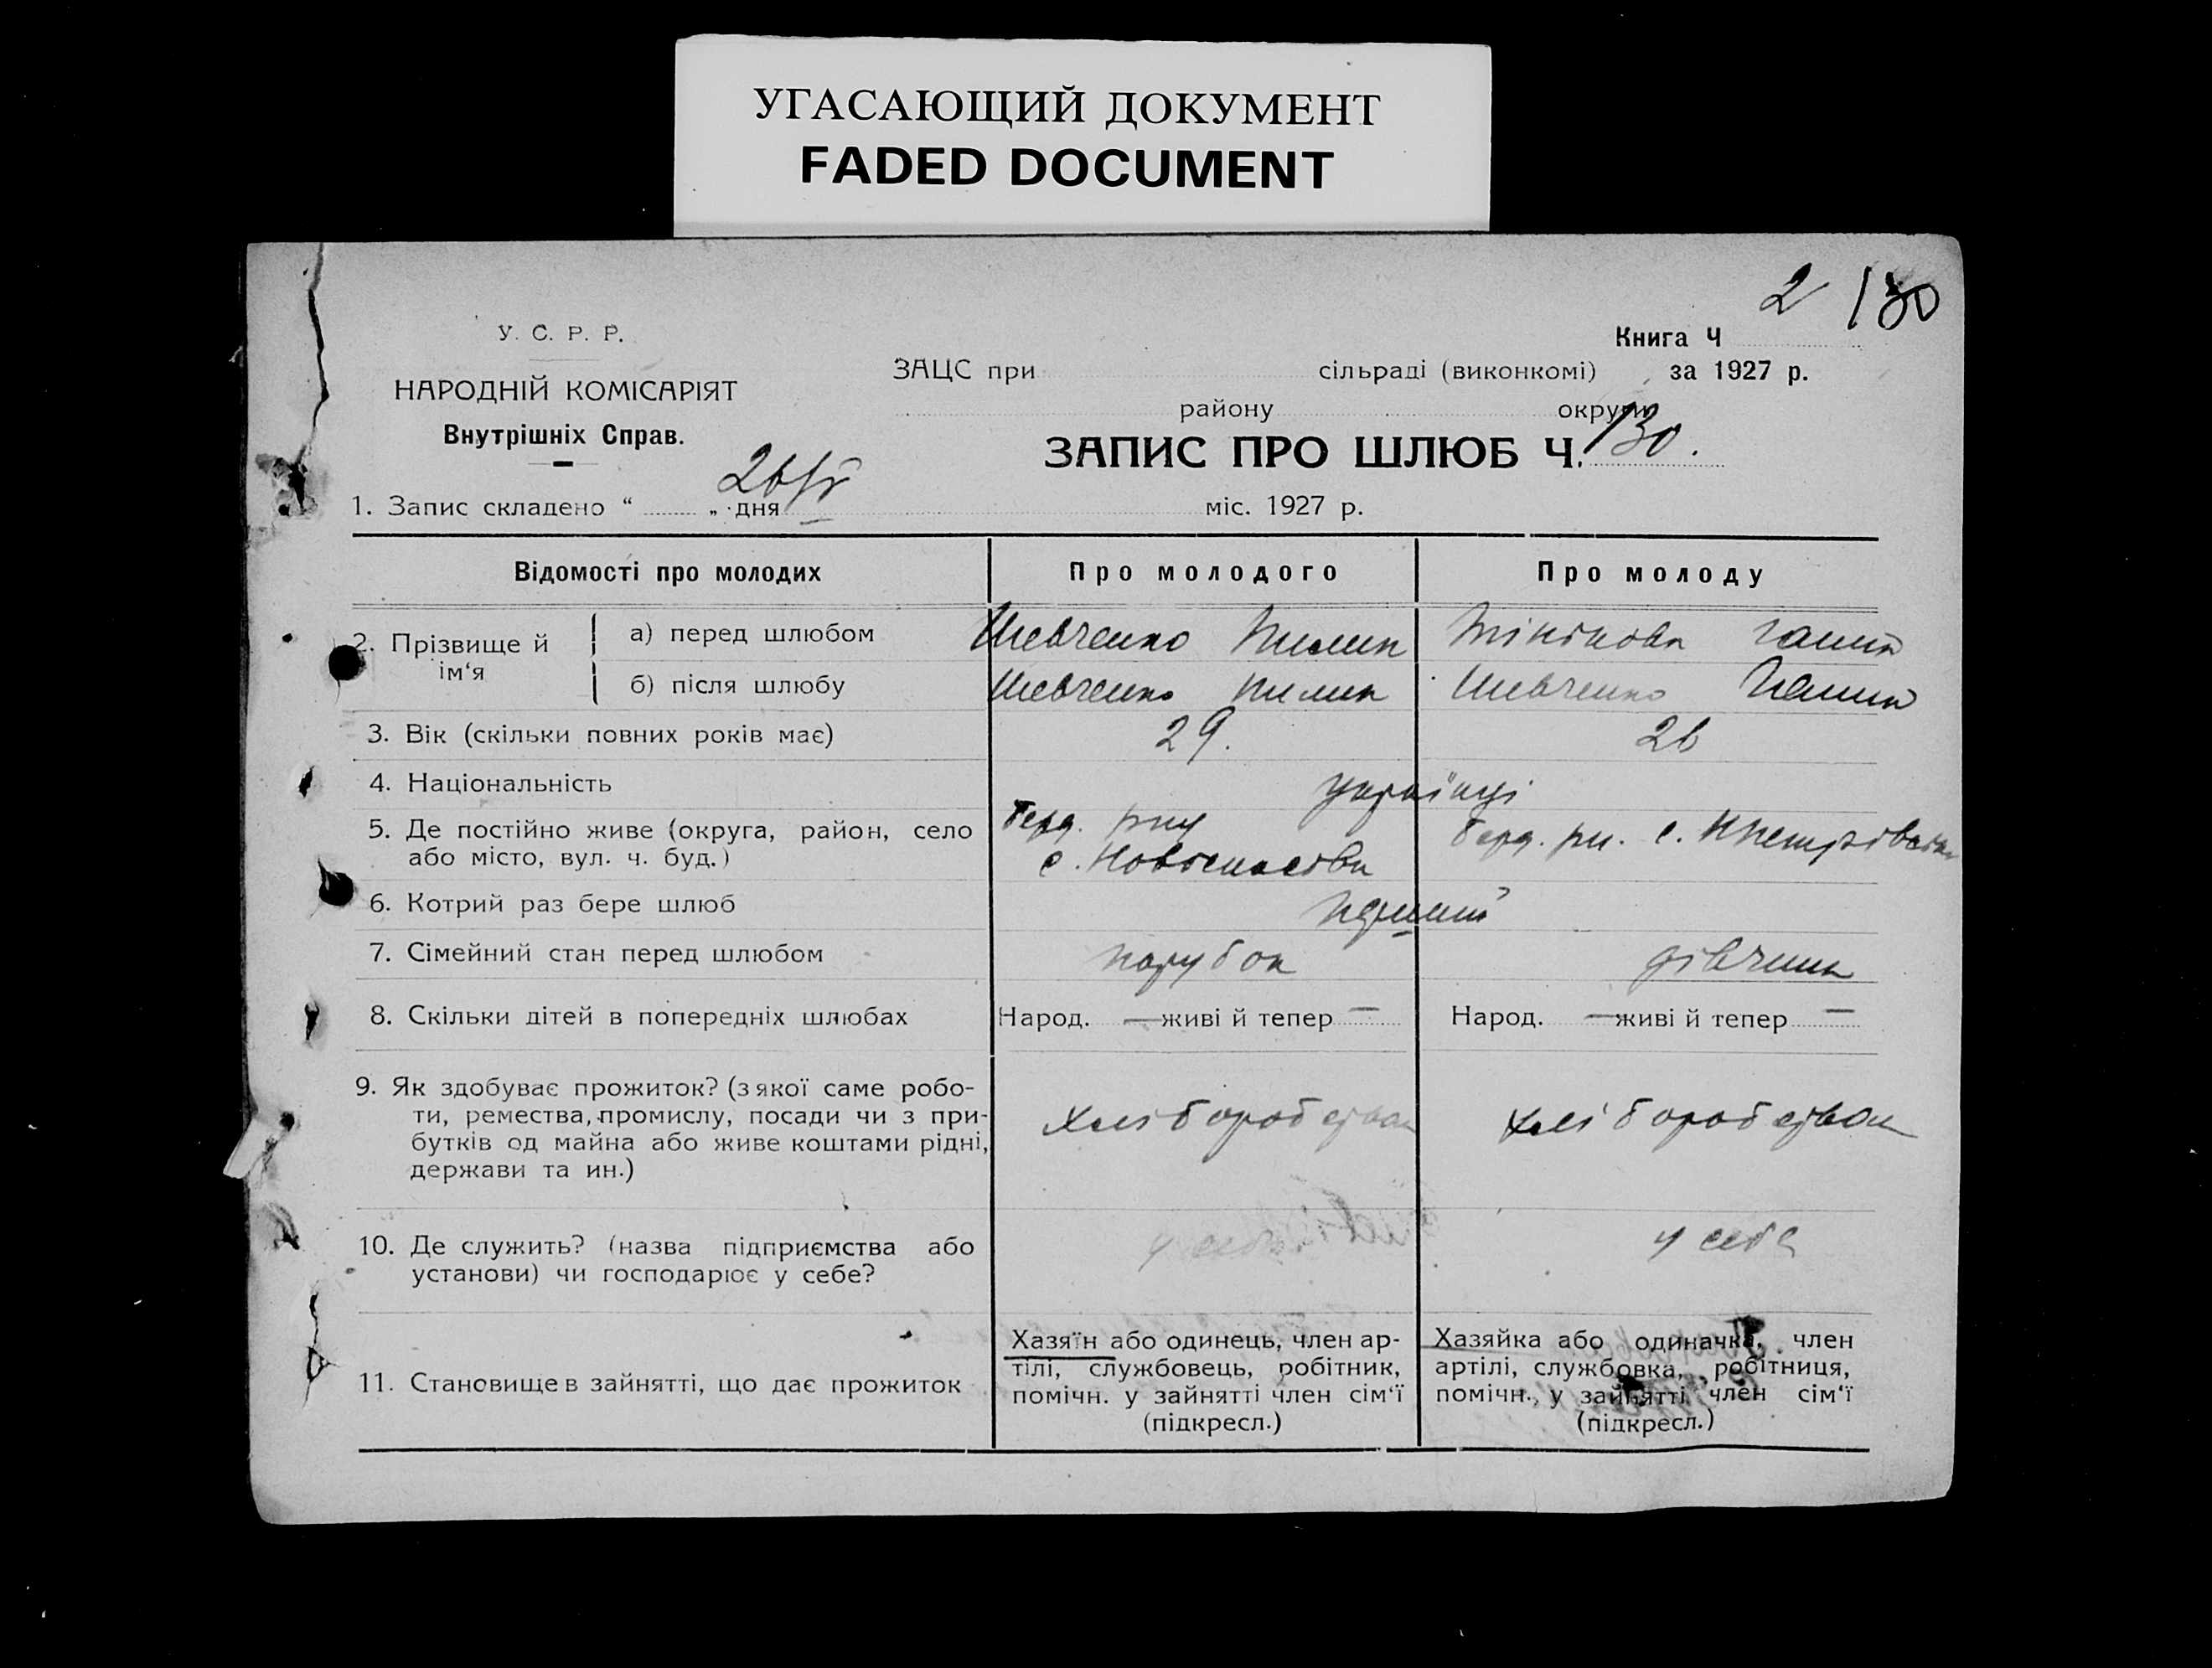 УГАСАЮЩИЙ ДОКУМЕНТ
FADED DOCUMENT
2 130
У. С. Р. Р.
Книга Ч
НАРОДНІЙ КОМІСАРІЯТ
Внутрішніх Справ.
ЗАЦС при сільраді (виконкомі) за 1927 р.
району округи
ЗАПИС ПРО ШЛЮБ Ч. 130.
1. Запис складено “ „ дня міс. 1927 р.
Відомості про молодих Про молодого Про молоду
2. Прізвище й ім‘я
а) перед шлюбом Шевченко Пилип Ганна
б) після шлюбу Шевченко Пилип Шевченко Ганна
3. Вік (скільки повних років має) 29. 26
4. Національність українці
5. Де постійно живе (округа, район, село
або місто, вул. ч. буд.)
Берд. рну
с. Новоспасівка
Берд. рн. с.
6. Котрий раз бере шлюб перший
7. Сімейний стан перед шлюбом парубок дівчина
8. Скільки дітей в попередніх шлюбах Народ. — живі й тепер — Народ. — живі й тепер —
9. Як здобуває прожиток? (з якої саме робо-
ти, ремества, промислу, посади чи з при-
бутків од майна або живе коштами рідні,
держави та ин.)
хліборобством хліборобством
10. Де служить? (назва підприємства або
установи) чи господарює у себе?
у себе у себе
11. Становище в зайнятті, що дає прожиток
Хазяїн або одинець, член ар-
тілі, службовець, робітник,
помічн. у зайнятті член сім‘ї
(підкресл.)
Хазяйка або одиначка, член
артілі, службовка, робітниця,
помічн., у зайнятті член сім‘ї
(підкресл.)